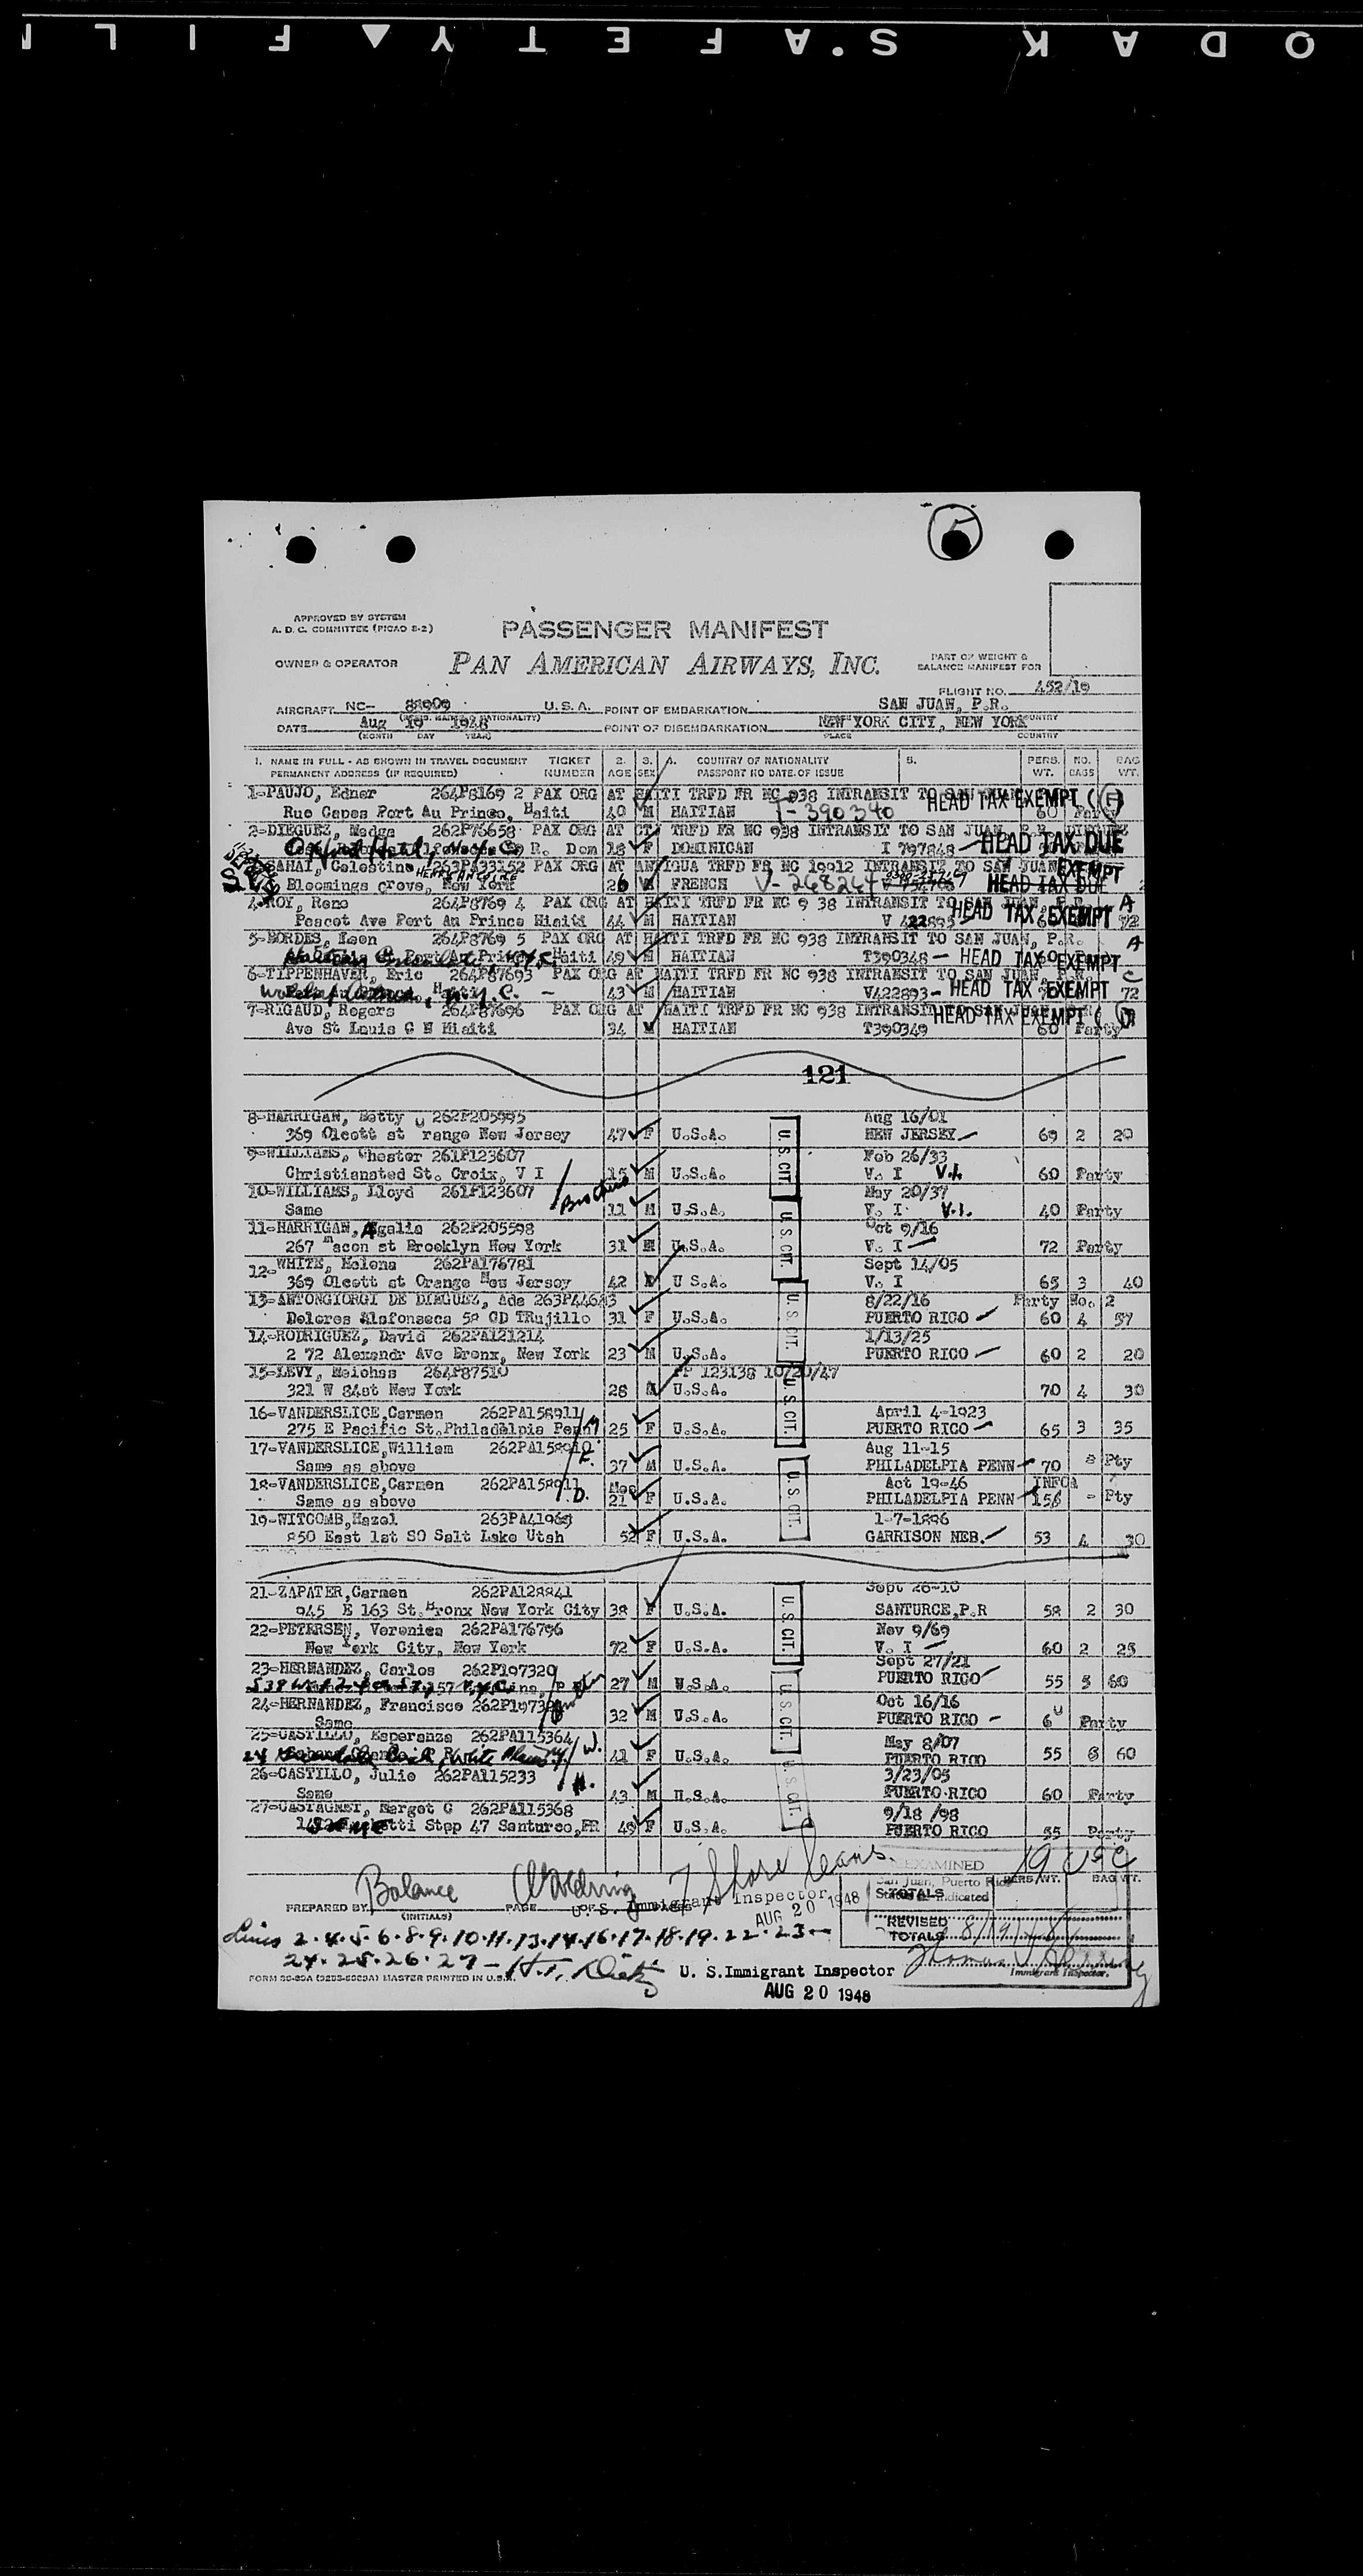 KODAK SAFETY FILM
5
APPROVED BY SYSTEM
A. D. C. COMMITTEE (PICAO 8-2)
PASSENGER MANIFEST
OWNER & OPERATOR
PAN AMERICAN AIRWAYS, INC.
PART OF WEIGHT &
BALANCE MANIFEST FOR
FLIGHT NO. 452/19
AIRCRAFT NC- 88909 U.S.A. POINT OF EMBARKATION SAN JUAN, P.R.
DATE Aug 19 1948 POINT OF DISEMBARKATION NEW YORK CITY, NEW YORK
(MONTH DAY YEAR) PLACE COUNTRY
1. NAME IN FULL - AS SHOWN IN TRAVEL DOCUMENT TICKET 2. 3. 4. COUNTRY OF NATIONALITY 5. PERS. NO. BAG
PERMANENT ADDRESS (IF REQUIRED) NUMBER AGE SEX PASSPORT NO DATE OF ISSUE WT. BAGS WT.
1-PAUJO, Edner 264P8169 2 PAX ORG AT HAITI TRFD FR NC 938 INTRANSIT TO SAN JUAN HEAD TAX EXEMPT
Rue Capes Port Au Prince, Haiti 40 M HAITIAN T-390340 60 Party
2-DIEGUEZ, Nedge 262P76658 PAX ORG AT CT TRFD FR NC 938 INTRANSIT TO SAN JUAN HEAD TAX DUE
Hotel, N.Y.C. R. Dom 18 F DOMINICAN I 797848
SAHAI, Celestine 263P233152 PAX ORG AT ANTIQUA TRFD FR NC 19912 INTRANSIT TO SAN JUAN EXEMPT
Bloomings grove, New York 26 M FRENCH V-268264 HEAD TAX DUE
4-ROY, Reno 264P8769 4 PAX ORG AT HAITI TRFD FR NC 9 38 INTRANSIT TO SAN JUAN, P.R. A
Poscot Ave Port Au Prince Hiaiti 44 M HAITIAN V 422895 HEAD TAX EXEMPT 72
5-BORDES, Leon 264P8769 5 PAX ORG AT HAITI TRFD FR NC 938 INTRANSIT TO SAN JUAN, P.R. A
Haiti 49 M HAITIAN T390348 - HEAD TAX EXEMPT
6-TIPPENHAVER, Eric 264P87693 PAX ORG AT HAITI TRFD FR NC 938 INTRANSIT TO SAN JUAN C
N.Y.C. - 43 M HAITIAN V422893- HEAD TAX EXEMPT 72
7-RIGAUD, Rogers 264P87696 PAX ORG AT HAITI TRFD FR NC 938 INTRANSIT TO SAN JUAN HEAD TAX EXEMPT
Ave St Louis G N Hiaiti 34 M HAITIAN T390349 60 Party
121
8-HARRIGAN, Betty 262P205995 Aug 16/01
369 Olcott st range New Jersey 47 F U.S.A. U.S. CIT. NEW JERSEY 69 2 20
9-WILLIAMS, Chester 261P123607 Feb 26/33
Christiansted St. Croix, V I 15 M U.S.A. V. I V.I. 60 Party
10-WILLIAMS, Lloyd 261P123607 Brothers May 20/37
Same 11 M U.S.A. U.S. CIT. V. I. V.I. 40 Party
11-HARRIGAN, Agalia 262P205598 Oct 9/16
267 Macon st Brooklyn New York 31 M U.S.A. V. I 72 Party
12-WHITE, Helena 262PA176781 Sept 14/05
369 Olcott st Orange New Jersey 42 U S.A. V. I 65 3 40
13-ANTONGIORGI DE DIEGUEZ, Ada 263P44643 U.S. CIT. 8/22/16 Party No. 2
Dolores Alsfonseca 58 CD TRujillo 31 F U.S.A. PUERTO RICO 60 4 57
14-RODRIGUEZ, David 262PA121214 1/13/25
2 72 Alexandr Ave Bronx, New York 23 M U.S.A. PUERTO RICO 60 2 20
15-LEVY, Meichas 264P87510 PP 123138 10/20/47
321 W 84st New York 28 M U.S.A. U.S. CIT. 70 4 30
16-VANDERSLICE, Carmen 262PA158911 M. April 4-1923
275 E Pacific St. Philadelpia Penn 25 F U.S.A. PUERTO RICO 65 3 35
17-VANDERSLICE, William 262PA158910 F. Aug 11-15
Same as above 37 M U.S.A. PHILADELPIA PENN 70 - Pty
18-VANDERSLICE, Carmen 262PA158911 D. Mos U.S. CIT. Act 19-46 INFCA
Same as above 21 F U.S.A. PHILADELPIA PENN 15 - Pty
19-WITCOMB, Hazel 263PA41968 1-7-1896
850 East 1st SO Salt Lake Utah 52 F U.S.A. GARRISON NEB. 53 4 30
21-ZAPATER, Carmen 262PA128841 Sept 26-10
945 E 163 St. Bronx New York City 38 F U.S.A. U.S. CIT. SANTURCE, P.R 58 2 30
22-PETERSEN, Veronica 262PA176796 Nov 9/69
New York City, New York 72 F U.S.A. V. I 60 2 25
23-HERNANDEZ, Carlos 262P197329 Sept 27/21
27 M U.S.A. U.S. CIT. PUERTO RICO 55 5 60
24-HERNANDEZ, Francisco Oct 16/16
Same 32 M U.S.A. PUERTO RICO - 60 Party
25-CASTILLO, Esperanza 262PA115364 W. May 8/07
41 F U.S.A. PUERTO RICO 55 6 60
26-CASTILLO, Julio 262PA115233 H. U.S. CIT. 3/23/05
Same 43 M U.S.A. PUERTO RICO 60 Party
27-CASTAGNET, Margot G 262PA115368 9/18 /98
Stop 47 Santurce, PR 49 F U.S.A. PUERTO RICO 55 Party
EXAMINED 19 USC
Balance San Juan, Puerto Rico PERS. WT. BAG WT.
PREPARED BY (INITIALS) PAGE OF U. S. Immigrant Inspector TOTALS
AUG 20 1948
REVISED TOTALS 8/19/48
Lines 2-4-5-6-8-9-10-11-13-14-16-17-18-19-22-23-
24-25-26-27 - H.F. Dietz
U. S. Immigrant Inspector Immigrant Inspector.
MASTER PRINTED IN U.S.A.
AUG 20 1948